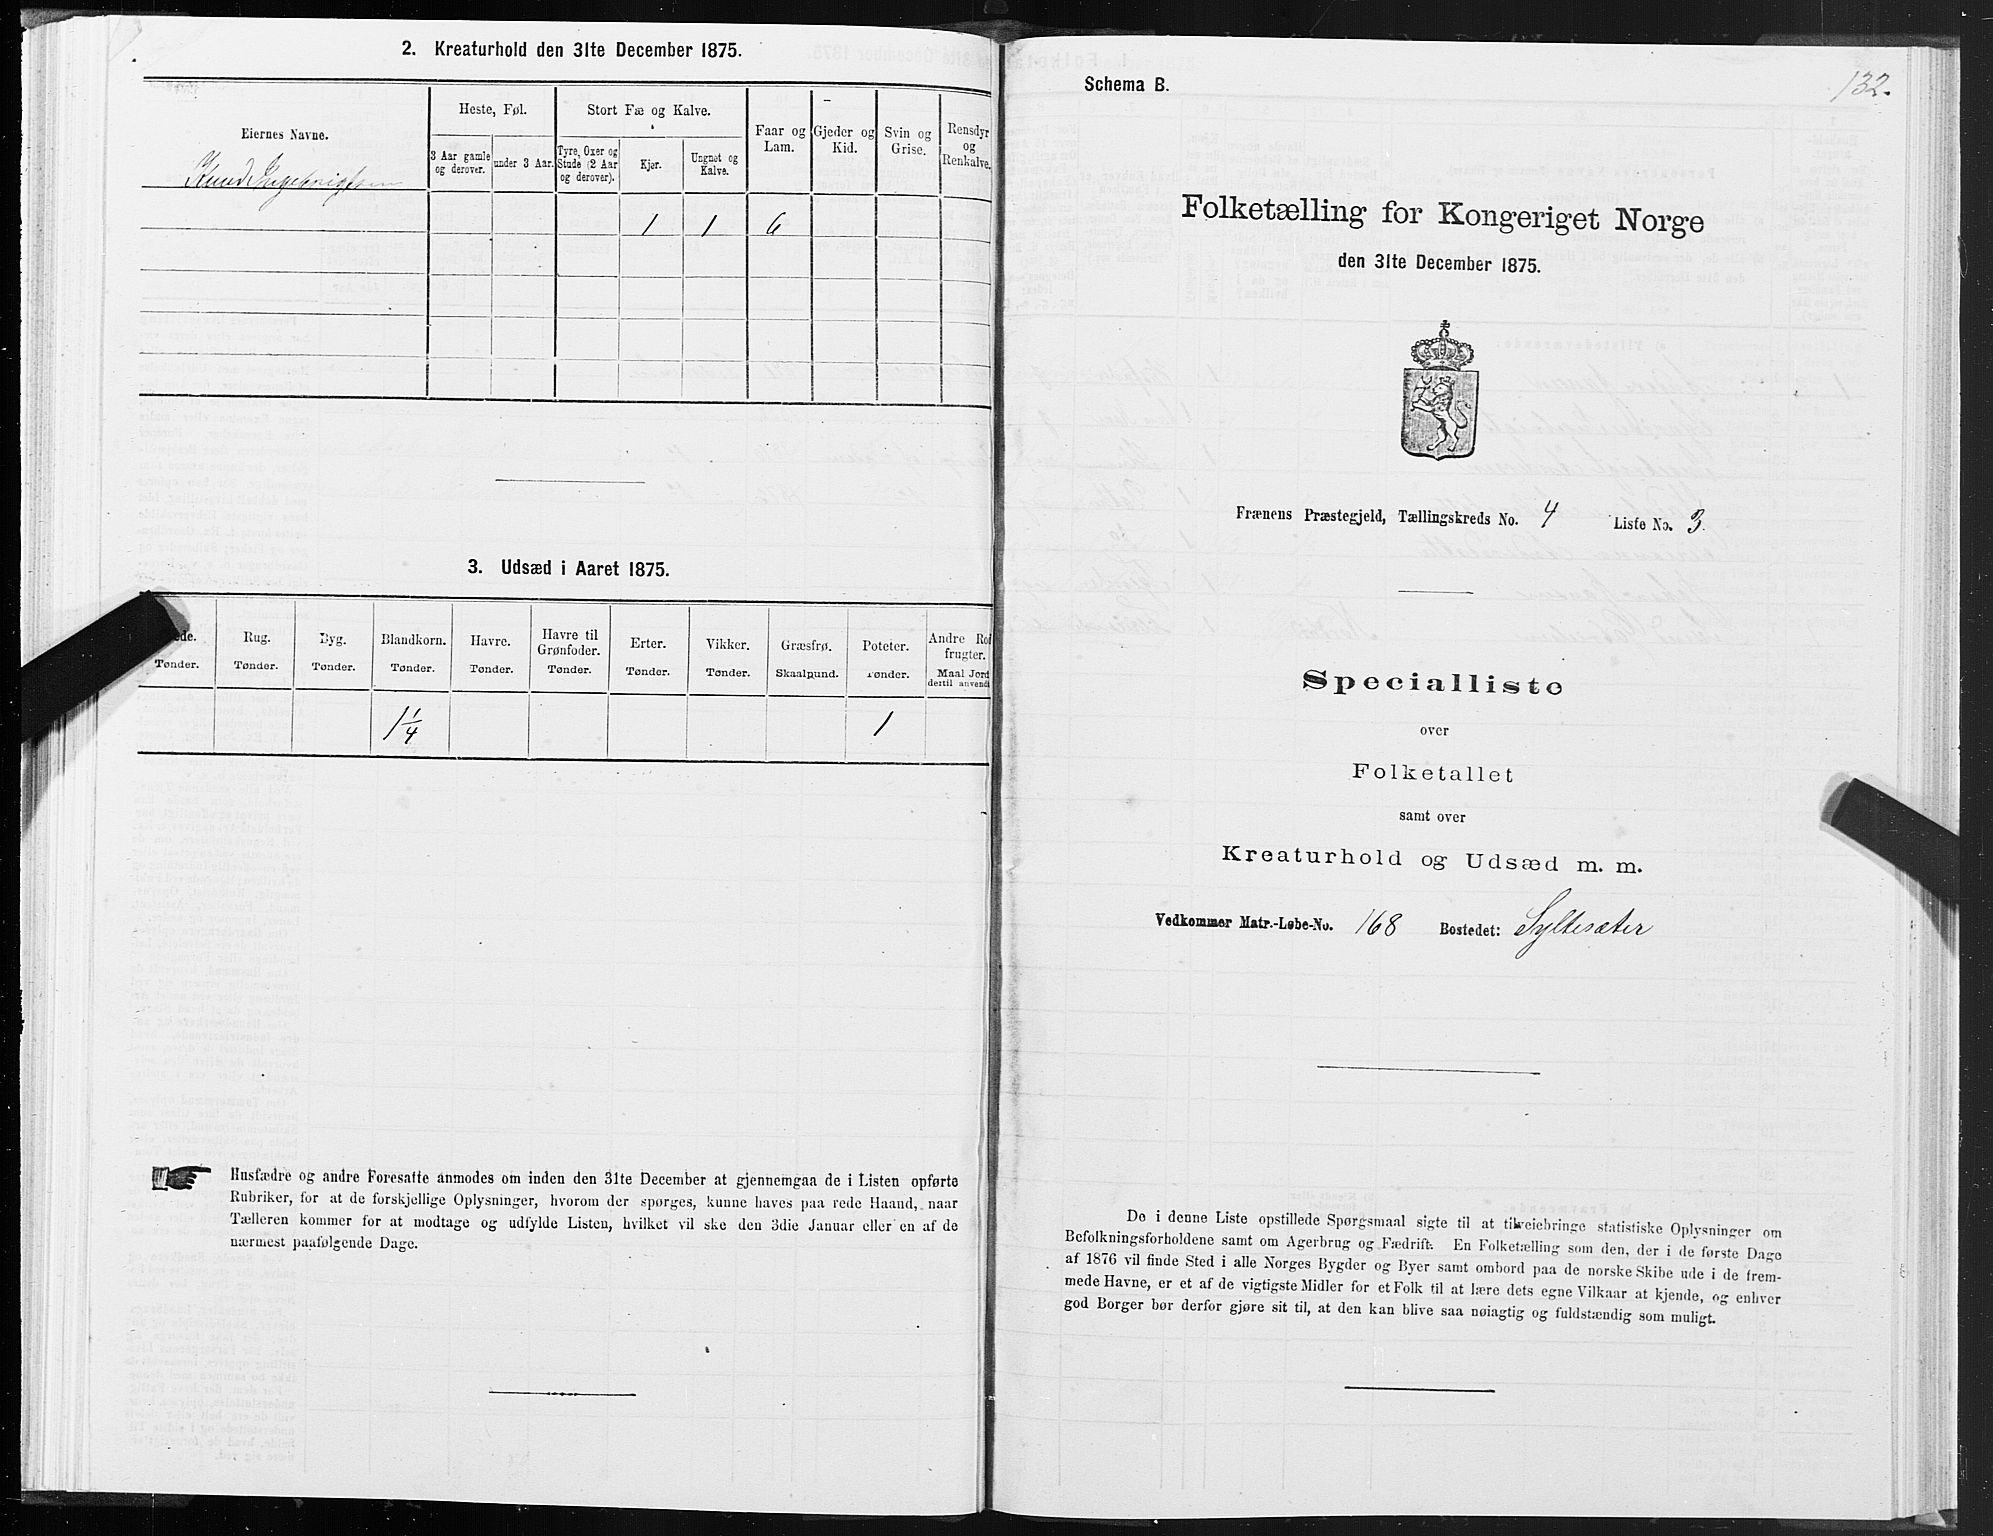 2. Kreaturhold den 31te December 1875.
Eiernes Navne.
Heste, Føl.
Stort Fæ og Kalve.
Faar og Lam.
Gjeder og Kid.
Svin og Grise.
Rensdyr og Renkalve.
3 Aar gamle og derover.
under 3 Aar.
Tyre, Oxer og Stude (2 Aar og derover).
Kjør.
Ungnøt og Kalve.
Knud Ingebrigtsen
1 1 6
3. Udsæd i Aaret 1875.
Rug. Byg. Blandkorn. Havre. Havre til Grønfoder. Erter. Vikker. Græsfrø. Poteter. Andre Rod frugter.
Tønder. Tønder. Tønder. Tønder. Tønder. Tønder. Tønder. Tønder. Skaalpund. Tønder. Maal Jord dertil anvendt
1 1/4 1
Husfædre og andre Foresatte anmodes om inden den 31te December at gjennemgaa de i Listen opførte
Rubriker, for at de forskjellige Oplysninger, hvorom der spørges, kunne haves paa rede Haand, naar
Tælleren kommer for at modtage og udfylde Listen, hvilket vil ske den 3die Januar eller en af de
nærmest paafølgende Dage.
Schema B.
132.
Folketælling for Kongeriget Norge
den 31te December 1875.
Frænens Præstegjeld, Tællingskreds No. 4 Liste No. 3.
Specialliste
over
Folketallet
samt over
Kreaturhold og Udsæd m. m.
Vedkommer Matr.-Løbe-No. 168 Bostedet: Syltesæter
De i denne Liste opstillede Spørgsmaal sigte til at tilveiebringe statistiske Oplysninger om
Befolkningsforholdene samt om Agerbrug og Fædrift. En Folketælling som den, der i de første Dage
af 1876 vil finde Sted i alle Norges Bygder og Byer samt ombord paa de norske Skibe ude i de frem-
mede Havne, er et af de vigtigste Midler for et Folk til at lære dets egne Vilkaar at kjende, og enhver
god Borger bør derfor gjøre sit til, at den kan blive saa nøiagtig og fuldstændig som muligt.